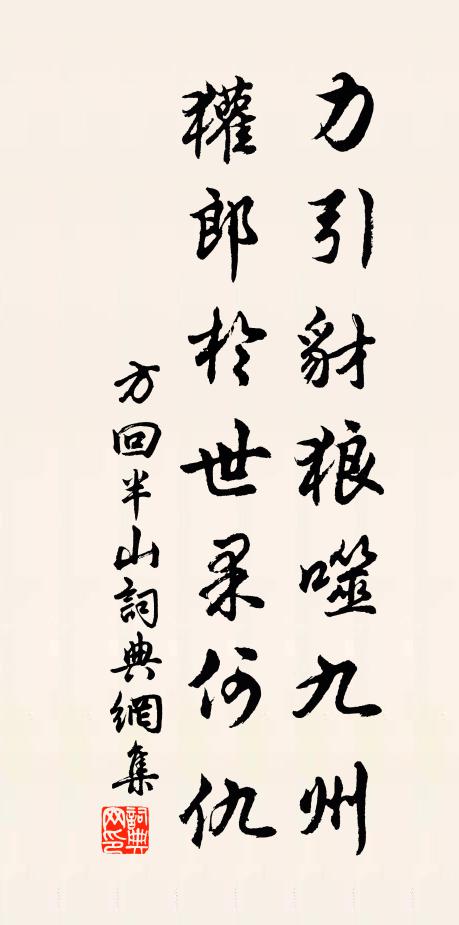 力引豺狼噬九州
獾郎於世果何仇
方回半山詞典網集
詞典
網印